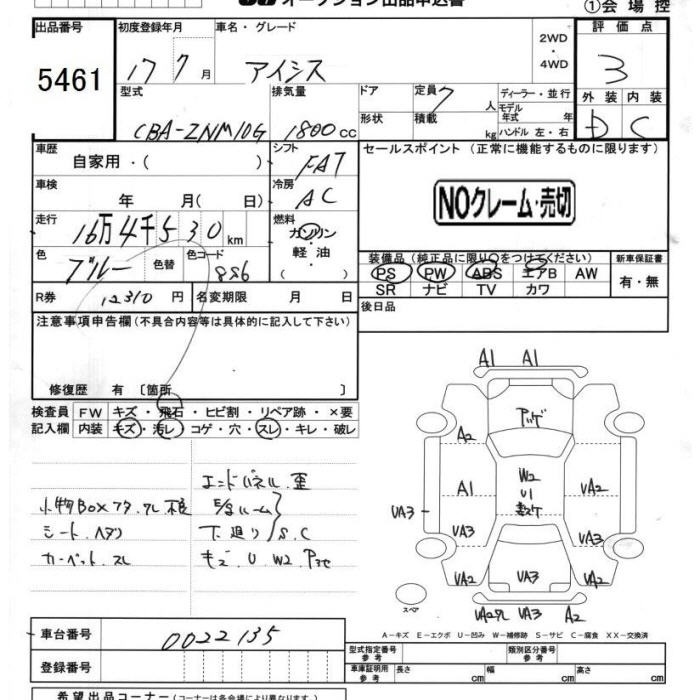 オークション出品申込書
①会場控
出品番号 初度登録年月 車名・グレード 2WD・4WD 評価点
5461 17 7月 アイシス 3
型式 排気量 ドア 定員 7人 ディーラー・並行 外装 内装
CBA-ZNM10G 1800cc 形状 積載 kg モデル年式 年 ハンドル 左・右 D C
車歴 自家用・( ) シフト FAT セールスポイント(正常に機能するものに限ります)
車検 年 月( 日) 冷房 AC NOクレーム・売切
走行 16万4千530km 燃料 ガソリン・軽油・( )
色 ブルー 色替 色コード 8S6 装備品(純正品に限り○をつけてください) 新車保証書
PS PW ABS エアB AW 有・無
SR ナビ TV カワ
R券 12310円 名変期限 月 日 後日品
注意事項申告欄(不具合内容等は具体的に記入して下さい)
修復歴 有 〔箇所 〕
検査員 FW キズ・飛石・ヒビ割・リペア跡・×要
記入欄 内装 キズ・汚レ・コゲ・穴・スレ・キレ・破レ
エンドパネル歪
小物BOXフタ
シート.ヘタリ 下廻り S.C
カーペット.スレ キズ.U W2
A1 A1
A2
W2
A1 U1 UA2
UA3
UA3 UA3
UA2 UA3 UA2
スペア UA3 A2
A-キズ E-エクボ U-凹み W-補修跡 S-サビ C-腐食 XX-交換済
車台番号 0022135
登録番号
型式指定番号 参考 類別区分番号 参考
車庫証明用 参考 長さ cm 幅 cm 高さ cm
希望出品コーナー(コーナーは各会場により異なります。)